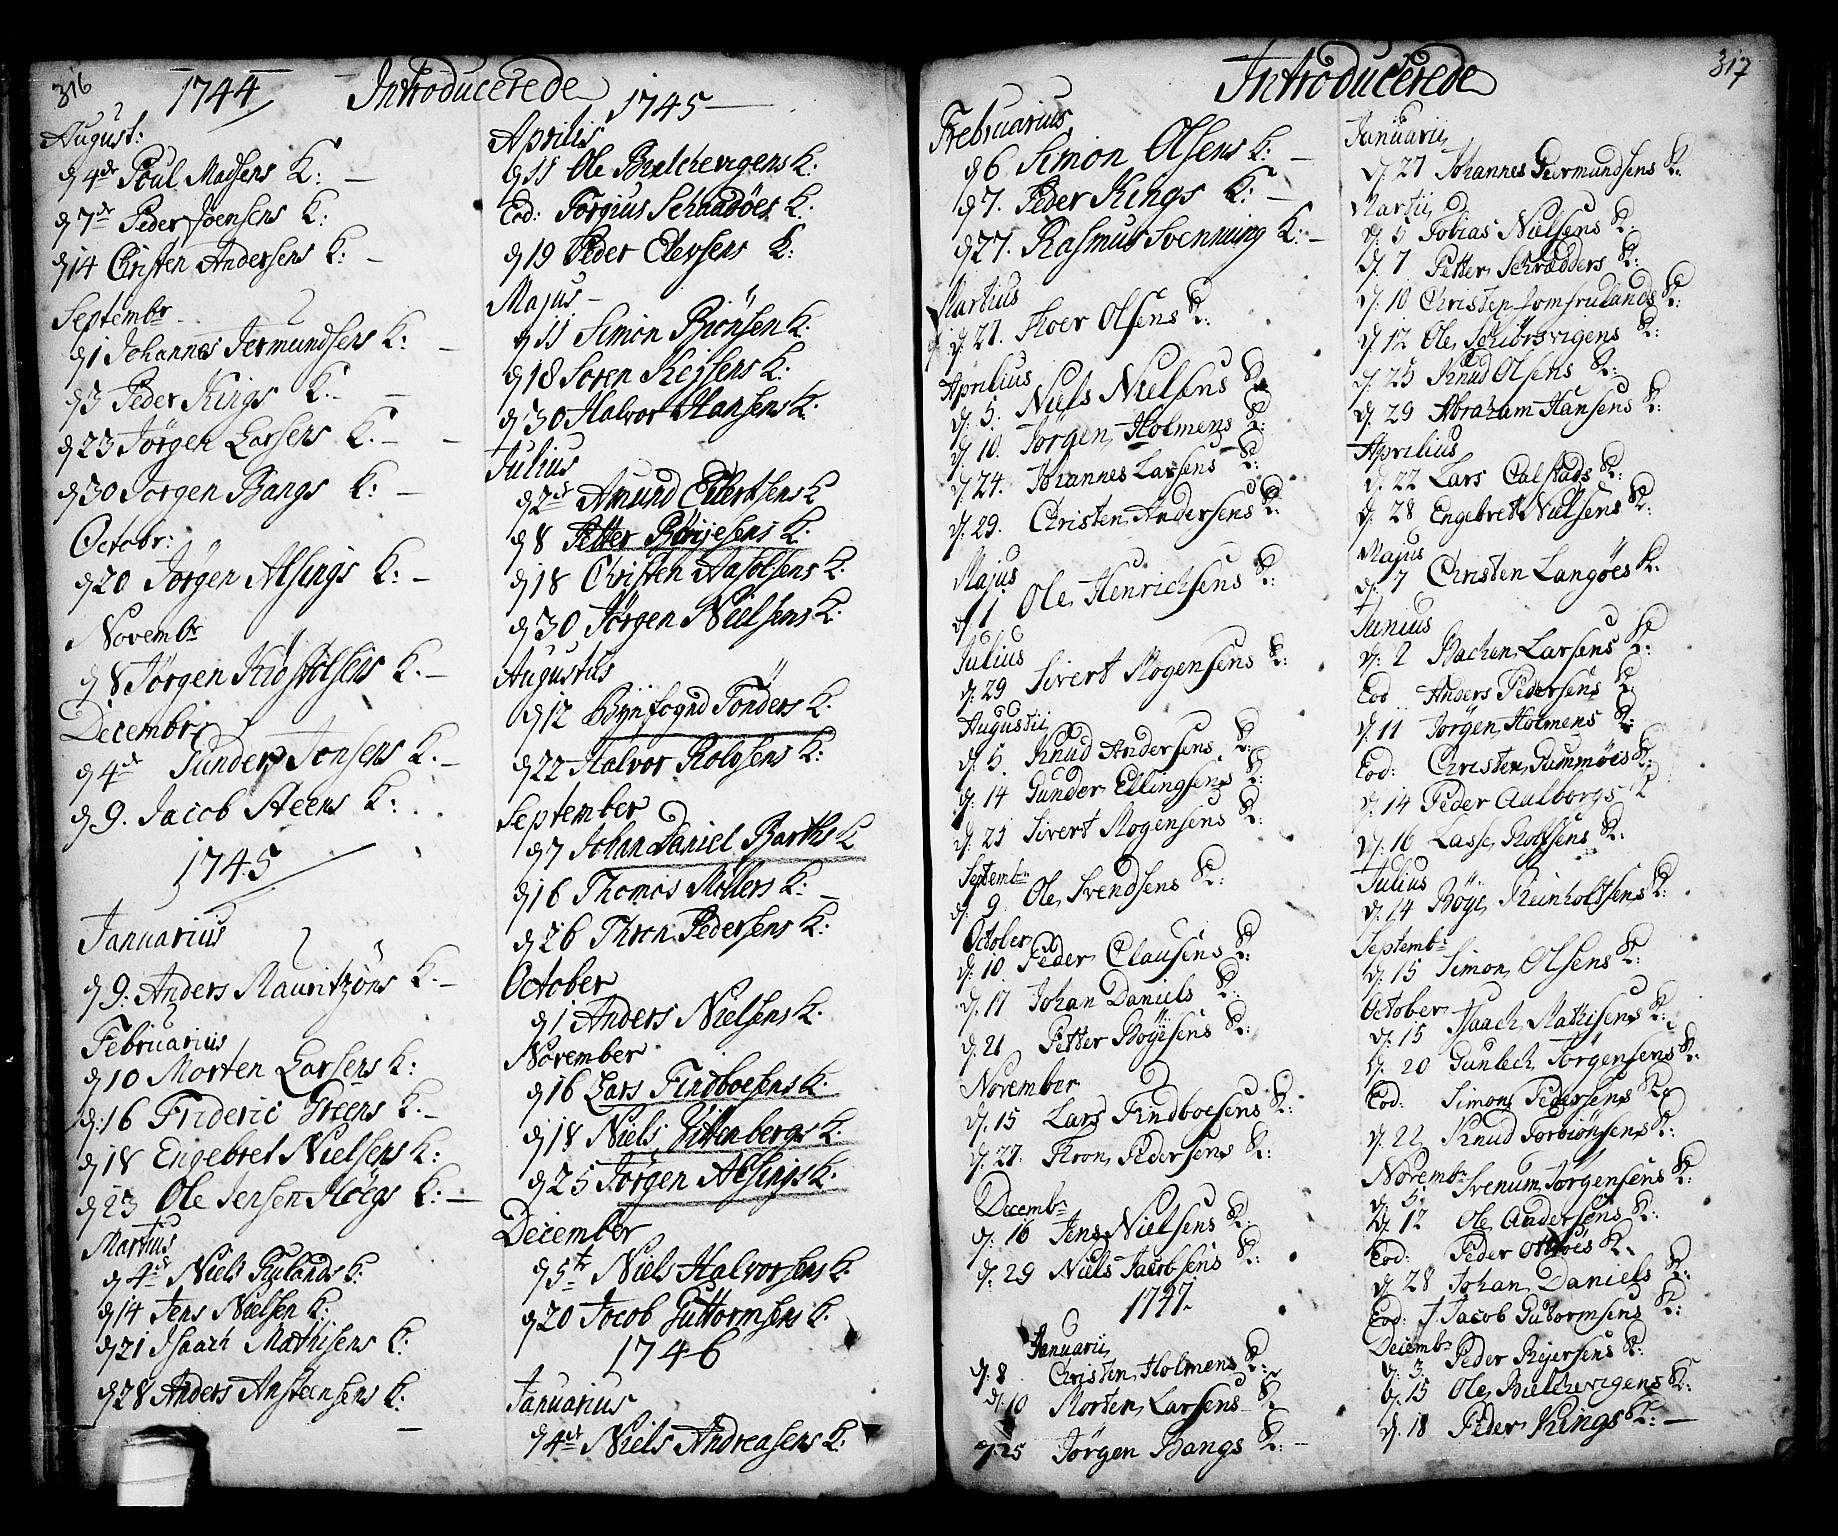 316
1744 Introducerede
August:
d 4de Poul Madsens K:
d 7de Peder Joensens K:
d 14 Christen Andersens K:
Septembr
d 1 Johannes Jermundsens K:
d 3 Peder Kings K:
d 23 Jørgen Larsens K.
d 30 Jørgen Bangs K:
Octobr:
d 20 Jørgen Alsings K:
Novembr
d 8 Jørgen Kiøstolsens K.
Decembr
d 4de Gunder Jonsens K.
d 9. Jacob Steens K:
1745
Januarius
d 9. Anders Mauritzøns K.
Februarius
d 10 Morten Larsens K:
d. 16 Frideric Greens K.
d 18 Engebret Nielsens K:
d 23 Ole Jensen Høegs K:
Martius
d 4de Niels Rylands K:
d 14 Jens Nielsen K:
d 21 Isaach Mathisens K:
d 28 Anders Ansteensens K:
1745
Aprilis
d 11 Ole Buelchevigens K:
Eod: Torgius Schaadøes K.
d 19 Peder Elevsens K:
Majus
d 11 Simon Biønsen K.
d 18 Soren Keysens K.
d 30 Halvor Hansens K.
Julius
d 2de Amund Evertsens K
d 8 Petter Børjesens K.
d 18 Christen Aasolsens K.
d 30 Jørgen Nielsens K.
Augustus
d 12 Byefogud Tonders K.
d 22 Halvor Rolvsens K:
September
d 7 Johan Daniel Barths K
d 16 Thomas Møllers K:
d 26 Thron Pedersens K:
October
d 1 Anders Nielsens K.
November
d 16 Lars Findboesens K.
d 18 Niels Vittenbergs K.
d 25 Jørgen Alsings K.
December
d 5te Niels Halvorsens K.
d 20 Jacob Guttormsens K.
1746
Januarius
d 4de Niels Andreasens K.
Introducerede 317
Februarius
d 6 Simon Olsens K:
d 7. Peder Kings K:
d 27. Rasmus Svenning K:
Martius
d. 21. Roer Olsens K:
Aprilius
d. 5. Niels Nielsens K
d. 10. Jørgen Holmens K:
d. 24. Johannes Larsens K:
d. 29. Christen Andersens K:
Majus
d 1 Ole Henrichsens K:
Julius
d. 29 Sivert Mogensens K:
Augustii
d. 5 Knud Andersens K:
d. 14 Gunder Ellingsens K:
d. 23 Sivert Mogensens K:
Septembr
d. 9 Ole Svendsens K:
October
d. 10 Peder Clausens K:
d. 17 Johan Daniels K:
d. 21 Petter Bøyesens K:
November
d. 15 Lars Findboesens K:
d. 27. Thron Pedersens K:
Decembr
d. 16 Jens Nielsens K:
d. 29 Niels Jacobsens K:
1747.
Januarii
d. 8 Christen Holmens K:
d. 10 Morten Larsens K
d. 25 Jørgen Bangs K:
Januarii
d. 27 Johannes Giermundsens K:
Martii
d. 5 Tobias Nielsens K:
d. 7 Petter Schrødders K:
d. 10 Christen Jomfrulands K:
d. 12 Ole Schiørsvigens K:
d. 25 Knud Olsens K:
d. 29 Abraham Hansens K:
Aprilius
d. 22 Lars Calstads K:
d. 28 Engebret Nielsens K:
Majus
d. 7 Christen Langøes K:
Junius
d. 2 Bachen Larsens K:
Eod Anders Pedersens K:
d. 11 Jørgen Holmens K:
Eod: Christen Gummøes K:
d. 14 Peder Aalborgs K
d. 16 Lasse Rolfsens K:
Julius
d. 14 Bøye Reinholtsens K:
Septembr
d. 15 Simon Olsens K:
October
d. 15 Isaach Mathisens K:
d. 20 Gunlech Jørgensens K:
Eod: Simon Pedersens K:
d. 22 Knud Torbiønsens K:
Novembr
d. 5 Svenum Jørgensens K:
d. 12 Ole Andersens K:
Eod: Peder Ottøes K.
d. 28 Johan Daniels K:
Eod: Jacob Gutormsens K:
Decembr
d. 3 Peder Reyersens K:
d. 15 Ole Buelchevigens K:
d. 18 Peder Kings K: